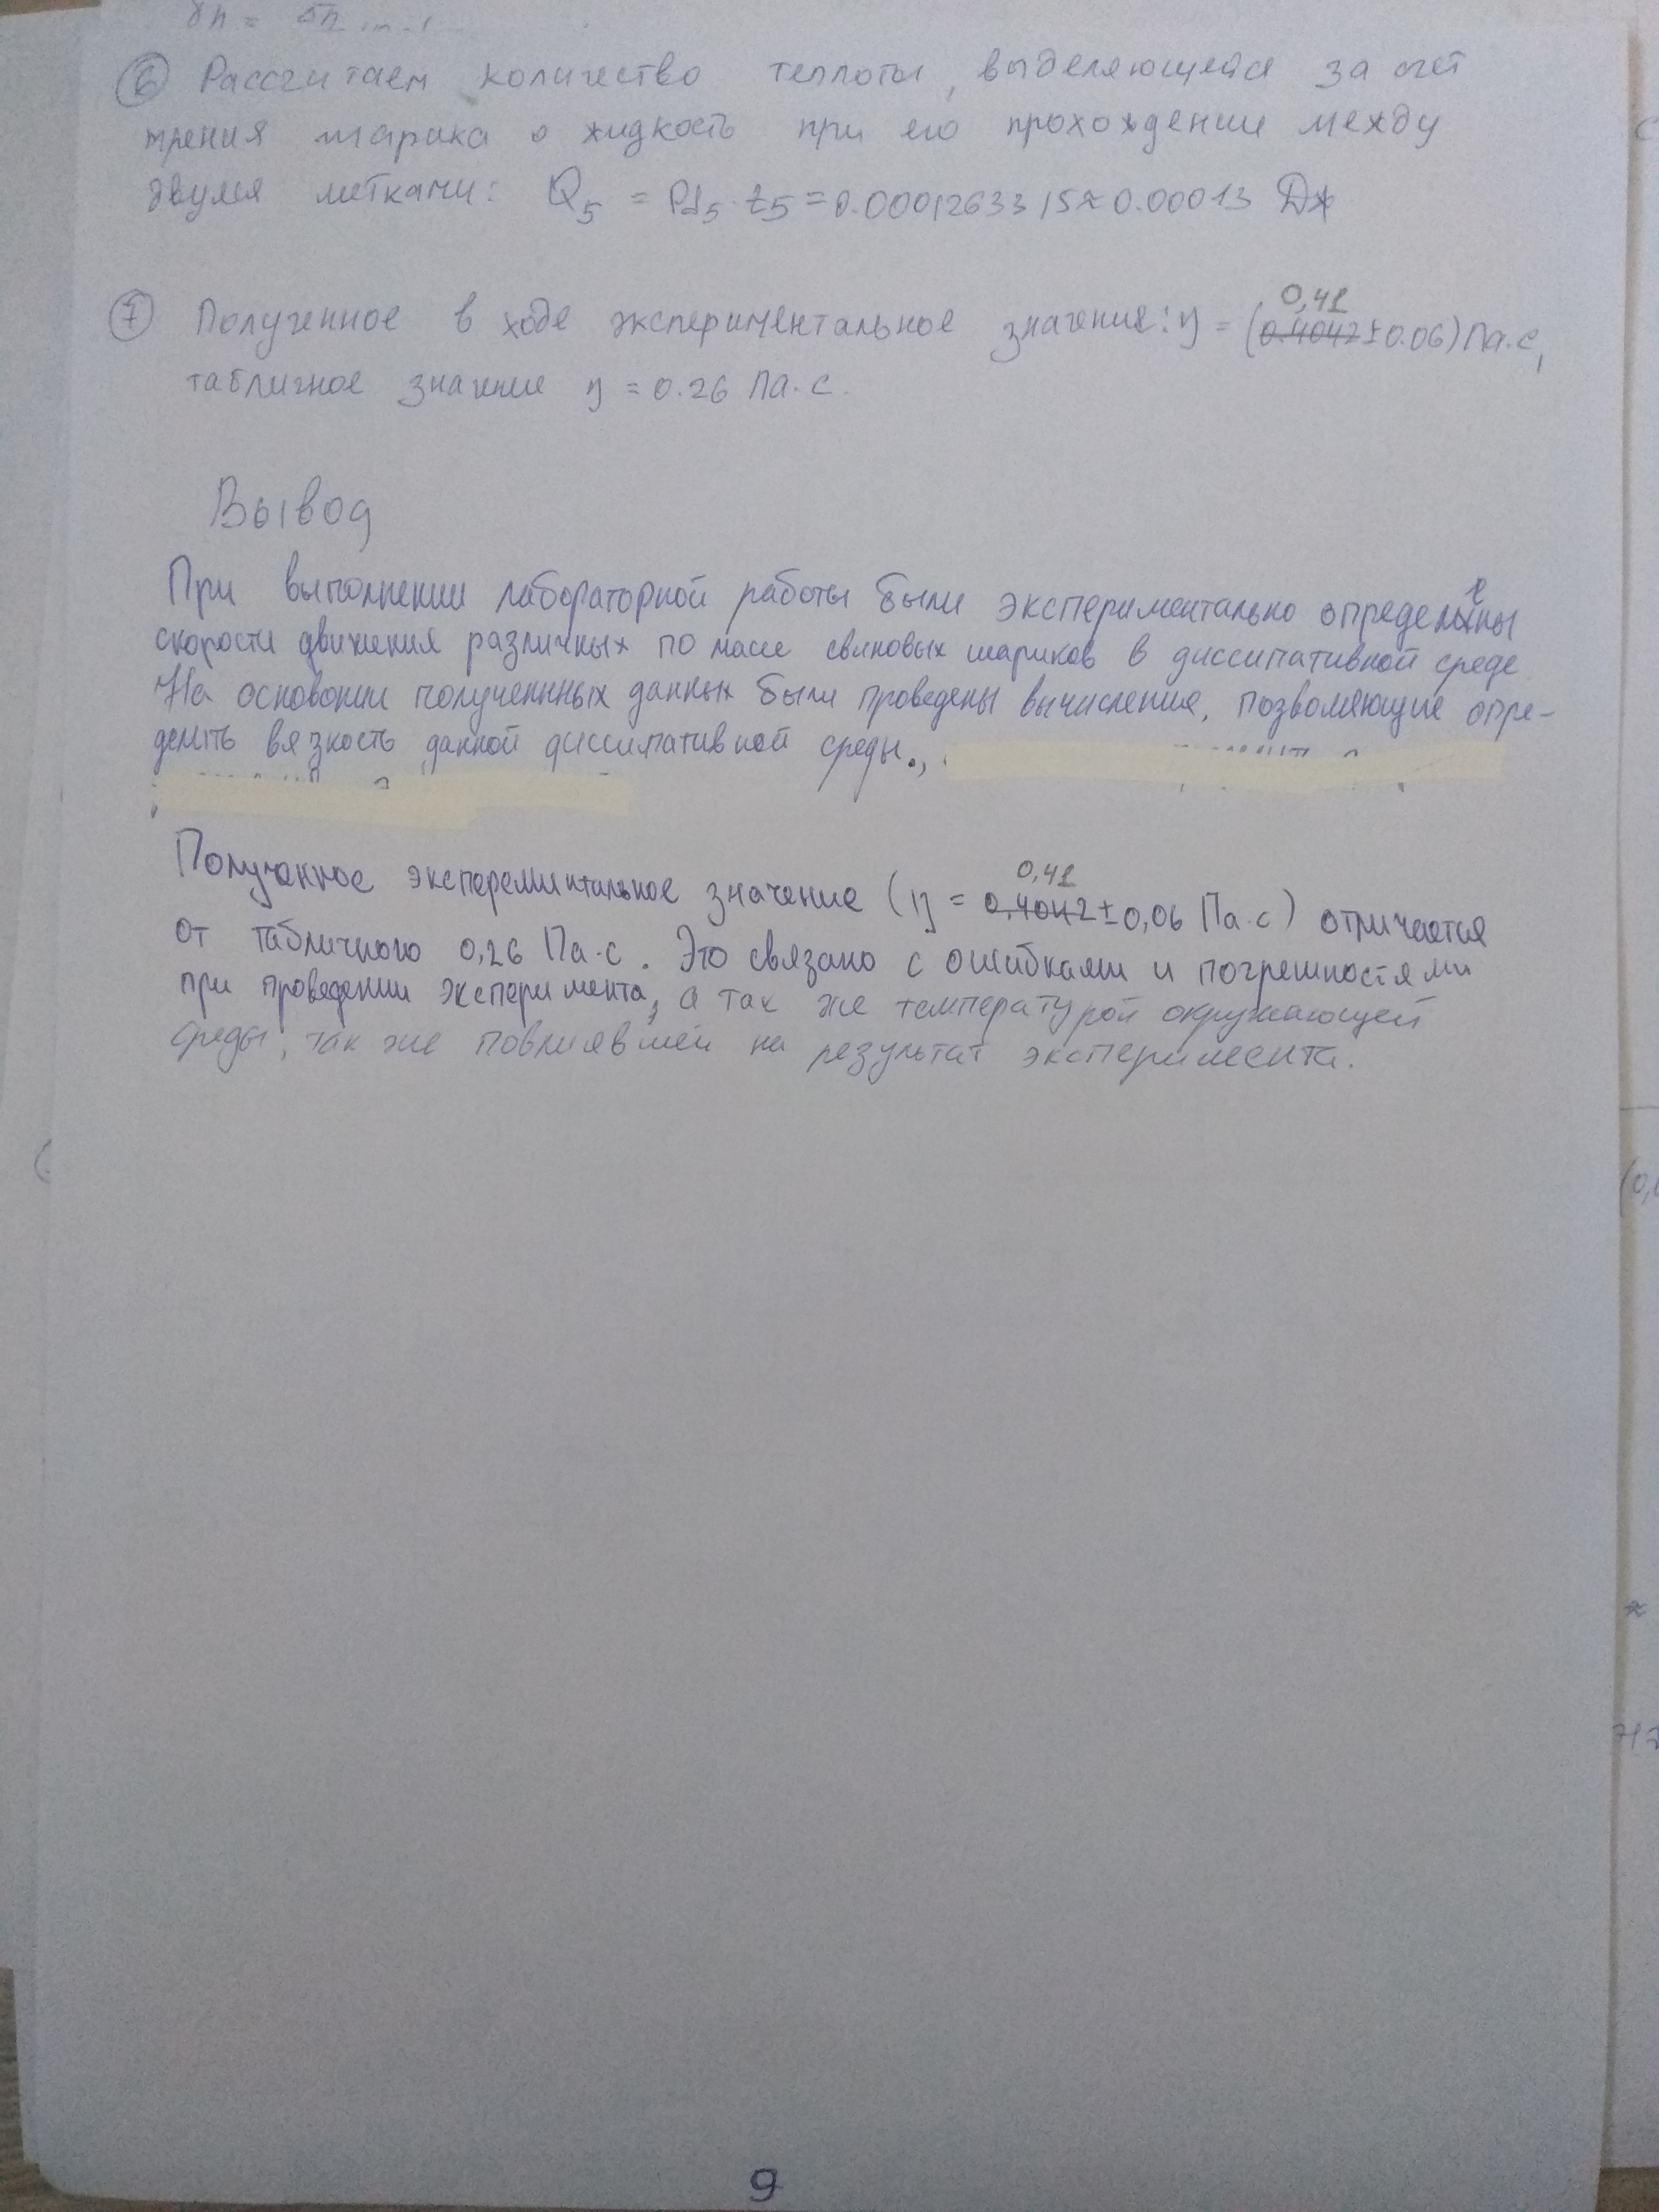 ⑥ Рассчитаем количество теплоты, выделяющейся за счет
трения шарика о жидкость при его прохождении между
двумя метками: Q₅ = Pd₅ · t₅ = 0.0001263315 ≈ 0.00013 Дж
0,41
⑦ Полученное в ходе экспериментальное значение: η = (~~0.4042~~ ± 0.06) Па·с,
табличное значение η = 0.26 Па·с.
Вывод
При выполнении лабораторной работы были экспериментально определены
скорости движения различных по массе свиновых шариков в диссипативной среде
На основании полученнных данных были проведены вычисления, позволяющие опре-
делить вязкость данной диссипативной среды.,
0,41
Полученное эксперементальное значение (η = ~~0,4042~~ ± 0,06 Па·с) отличается
от табличного 0,26 Па·с. Это связано с ошибками и погрешностями
при проведении эксперимента, а так же температурой окружающей
среды, так же повлиявшей на результат эксперимента.
9